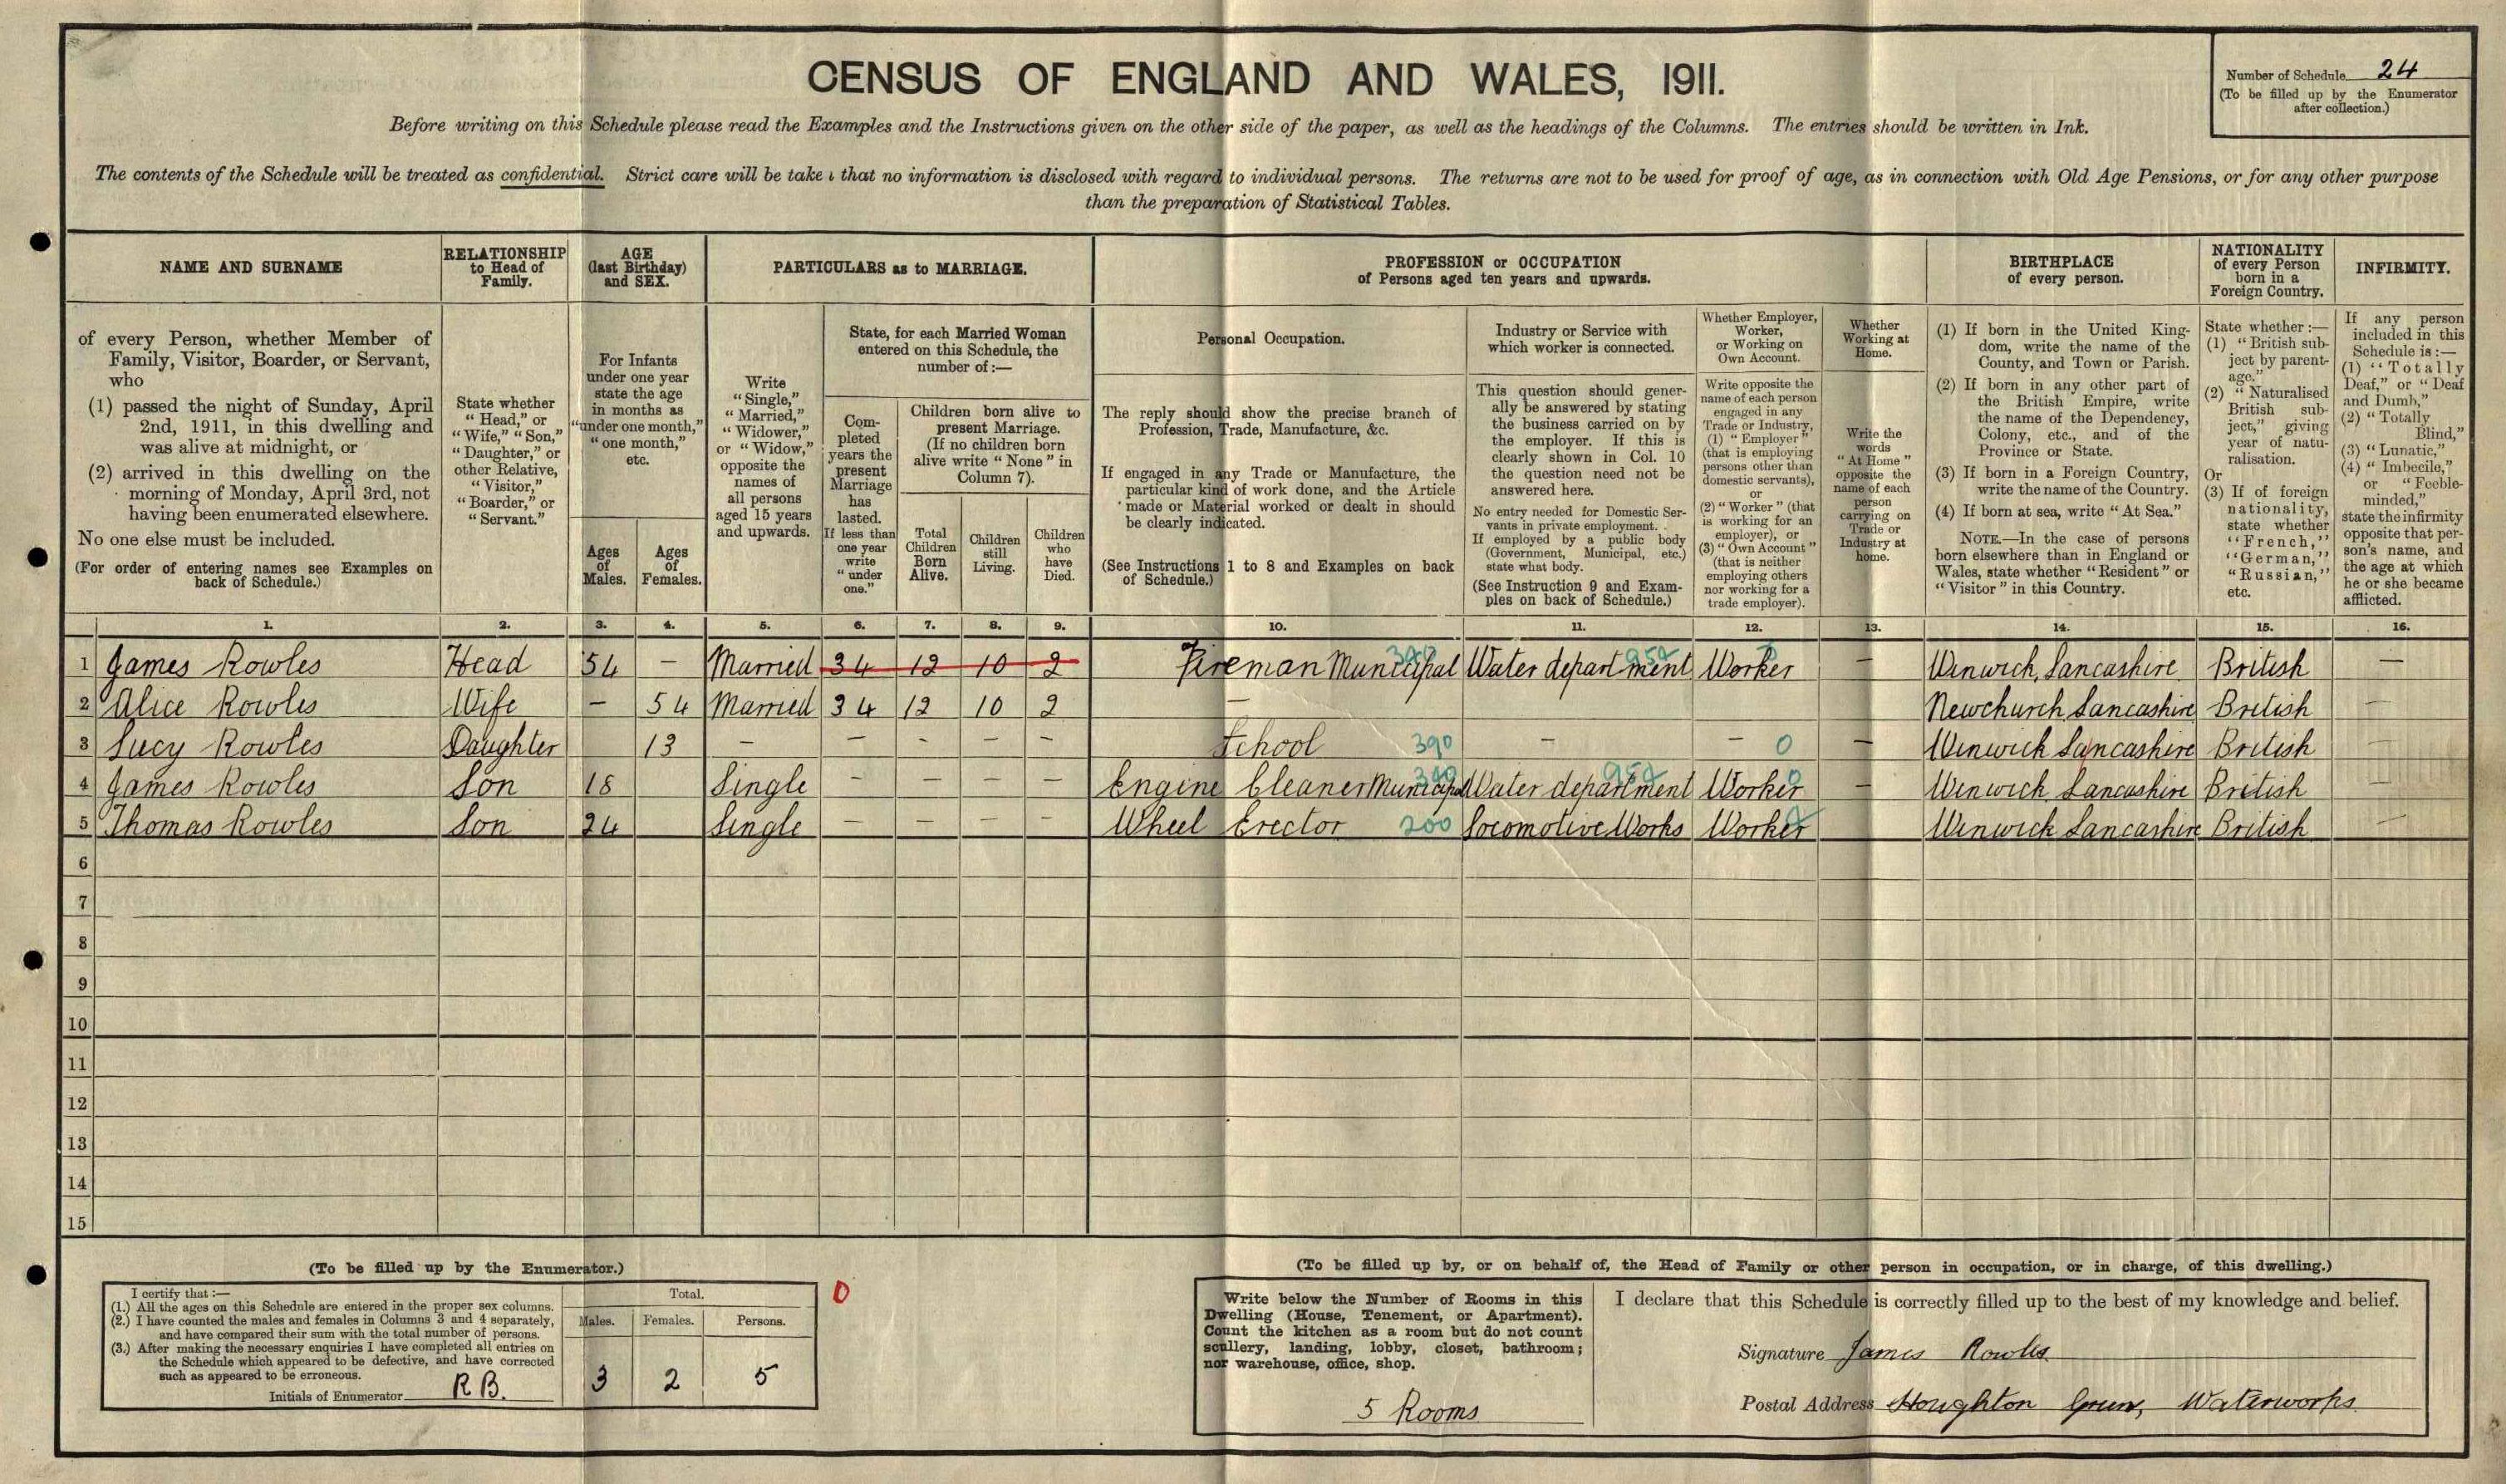 CENSUS OF ENGLAND AND WALES, 1911.
Number of Schedule 24
(To be filled up by the Enumerator
after collection.)
Before writing on this Schedule please read the Examples and the Instructions given on the other side of the paper, as well as the headings of the Columns. The entries should be written in Ink.
The contents of the Schedule will be treated as confidential. Strict care will be take that no information is disclosed with regard to individual persons. The returns are not to be used for proof of age, as in connection with Old Age Pensions, or for any other purpose
than the preparation of Statistical Tables.
NAME AND SURNAME
of every Person, whether Member of
Family, Visitor, Boarder, or Servant,
who
(1) passed the night of Sunday, April
2nd, 1911, in this dwelling and
was alive at midnight, or
(2) arrived in this dwelling on the
morning of Monday, April 3rd, not
having been enumerated elsewhere.
No one else must be included.
(For order of entering names see Examples on
back of Schedule.)
RELATIONSHIP
to Head of
Family.
State whether
"Head," or
"Wife," "Son,"
"Daughter," or
other Relative,
"Visitor,"
"Boarder," or
"Servant."
AGE
(last Birthday)
and SEX.
For Infants
under one year
state the age
in months as
"under one month,"
"one month,"
etc.
Ages
of
Males.
Ages
of
Females.
PARTICULARS as to MARRIAGE.
Write
"Single,"
"Married,"
"Widower,"
or "Widow,"
opposite the
names of
all persons
aged 15 years
and upwards.
State, for each Married Woman
entered on this Schedule, the
number of:—
Com-
pleted
years the
present
Marriage
has
lasted.
If less than
one year
write
"under
one."
Children born alive to
present Marriage.
(If no children born
alive write "None" in
Column 7).
Total
Children
Born
Alive.
Children
still
Living.
Children
who
have
Died.
PROFESSION or OCCUPATION
of Persons aged ten years and upwards.
Personal Occupation.
The reply should show the precise branch of
Profession, Trade, Manufacture, &c.
If engaged in any Trade or Manufacture, the
particular kind of work done, and the Article
made or Material worked or dealt in should
be clearly indicated.
(See Instructions 1 to 8 and Examples on back
of Schedule.)
Industry or Service with
which worker is connected.
This question should gener-
ally be answered by stating
the business carried on by
the employer. If this is
clearly shown in Col. 10
the question need not be
answered here.
No entry needed for Domestic Ser-
vants in private employment.
If employed by a public body
(Government, Municipal, etc.)
state what body.
(See Instruction 9 and Exam-
ples on back of Schedule.)
Whether Employer,
Worker,
or Working on
Own Account.
Write opposite the
name of each person
engaged in any
Trade or Industry,
(1) "Employer"
(that is employing
persons other than
domestic servants),
or
(2) "Worker" (that
is working for an
employer), or
(3) "Own Account"
(that is neither
employing others
nor working for a
trade employer).
Whether
Working at
Home.
Write the
words
"At Home"
opposite the
name of each
person
carrying on
Trade or
Industry at
home.
BIRTHPLACE
of every person.
(1) If born in the United King-
dom, write the name of the
County, and Town or Parish.
(2) If born in any other part of
the British Empire, write
the name of the Dependency,
Colony, etc., and of the
Province or State.
(3) If born in a Foreign Country,
write the name of the Country.
(4) If born at sea, write "At Sea."
NOTE.—In the case of persons
born elsewhere than in England or
Wales, state whether "Resident" or
"Visitor" in this Country.
NATIONALITY
of every Person
born in a
Foreign Country.
State whether:—
(1) "British sub-
ject by parent-
age."
(2) "Naturalised
British sub-
ject," giving
year of natu-
ralisation.
Or
(3) If of foreign
nationality,
state whether
"French,"
"German,"
"Russian,"
etc.
INFIRMITY.
If any person
included in this
Schedule is:—
(1) "Totally
Deaf," or "Deaf
and Dumb,"
(2) "Totally
Blind,"
(3) "Lunatic,"
(4) "Imbecile,"
or "Feeble-
minded,"
state the infirmity
opposite that per-
son's name, and
the age at which
he or she became
afflicted.
1. 2. 3. 4. 5. 6. 7. 8. 9. 10. 11. 12. 13. 14. 15. 16.
1 James Rowles Head 54 – Married 34 12 10 2 Fireman Municipal 390 Water department 954 Worker – Winwick, Lancashire British –
2 Alice Rowles Wife – 54 Married 34 12 10 2 – Newchurch Lancashire British –
3 Lucy Rowles Daughter 13 – – – – – School 390 – – 0 – Winwick Lancashire British –
4 James Rowles Son 18 Single – – – – Engine Cleaner Municipal 390 Water department 954 Worker 0 – Winwick Lancashire British –
5 Thomas Rowles Son 24 Single – – – – Wheel Erector 200 Locomotive Works Worker Winwick Lancashire British –
6
7
8
9
10
11
12
13
14
15
(To be filled up by the Enumerator.)
I certify that:—
(1.) All the ages on this Schedule are entered in the proper sex columns.
(2.) I have counted the males and females in Columns 3 and 4 separately,
and have compared their sum with the total number of persons.
(3.) After making the necessary enquiries I have completed all entries on
the Schedule which appeared to be defective, and have corrected
such as appeared to be erroneous.
Initials of Enumerator R B.
Total.
Males. Females. Persons.
3 2 5
0
(To be filled up by, or on behalf of, the Head of Family or other person in occupation, or in charge, of this dwelling.)
Write below the Number of Rooms in this
Dwelling (House, Tenement, or Apartment).
Count the kitchen as a room but do not count
scullery, landing, lobby, closet, bathroom;
nor warehouse, office, shop.
5 Rooms
I declare that this Schedule is correctly filled up to the best of my knowledge and belief.
Signature James Rowles
Postal Address Houghton Green, Waterworks